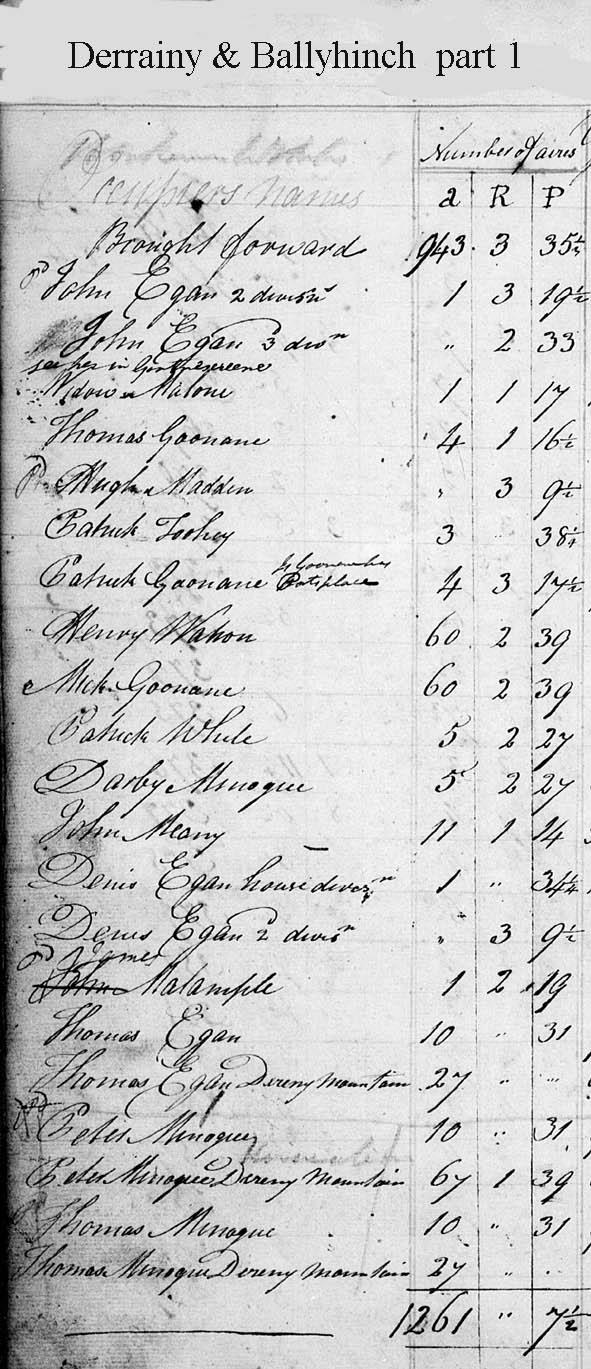 Derrainy & Ballyhinch part 1
Number of acres
Occupiers names a R P
Brought forward 943 3 35½
John Egan 2 divisn 1 3 19½
John Egan 3 divn " 2 33
see hes in
Widow Malone 1 1 17
Thomas Goonane 4 1 16½
Hugh Madden " 3 9½
Patrick Toohey 3 " 38¼
Patrick Goonane 4 3 17½
Henry Watson 60 2 39
Mick Goonane 60 2 39
Patrick White 5 2 27
Darby Minogue 5 2 27
John Meany 11 1 14
Denis Egan house divisn 1 " 34¼
Denis Egan 2 divisn " 3 9½
James
John Malample 1 2 19
Thomas Egan 10 " 31
Thomas Egan Dereny Mountain 27 " "
Peter Minogue 10 " 31
Peter Minogue Dereny Mountain 67 1 39
Thomas Minogue 10 " 31
Thomas Minogue Dereny Mountain 27 " "
1261 " 7½